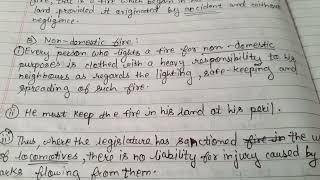 fire, that is a fire which began in his
land provided it originated by accident and without
negligence.
② Non-domestic fire:
① Every person who lights a fire for non-domestic
purposes is clothed with a heavy responsibility to his
neighbours as regards the lighting, safe-keeping and
spreading of such fire.
(ii) He must keep the fire in his land at his peril.
(iii) Thus, where the legislature has sanctioned fire in the u
of locomotives, there is no liability for injury caused by
arks flowing from them.